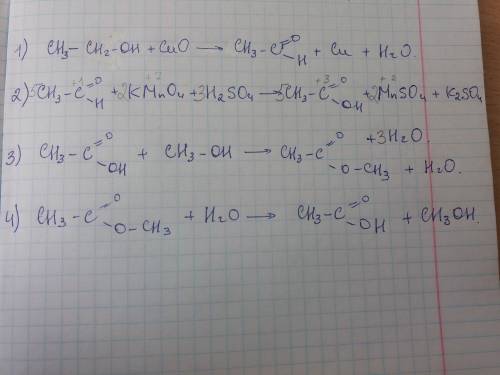 1) CH₃ – CH₂ – OH + CuO ⟶ CH₃ – C(=O)H + Cu + H₂O.
2) 5CH₃ – C(=O)H + 2KMnO₄ + 3H₂SO₄ ⟶ 5CH₃ – C(=O)OH + 2MnSO₄ + K₂SO₄
+ 3H₂O.
3) CH₃ – C(=O)OH + CH₃ – OH ⟶ CH₃ – C(=O)O – CH₃ + H₂O.
4) CH₃ – C(=O)O – CH₃ + H₂O ⟶ CH₃ – C(=O)OH + CH₃OH.